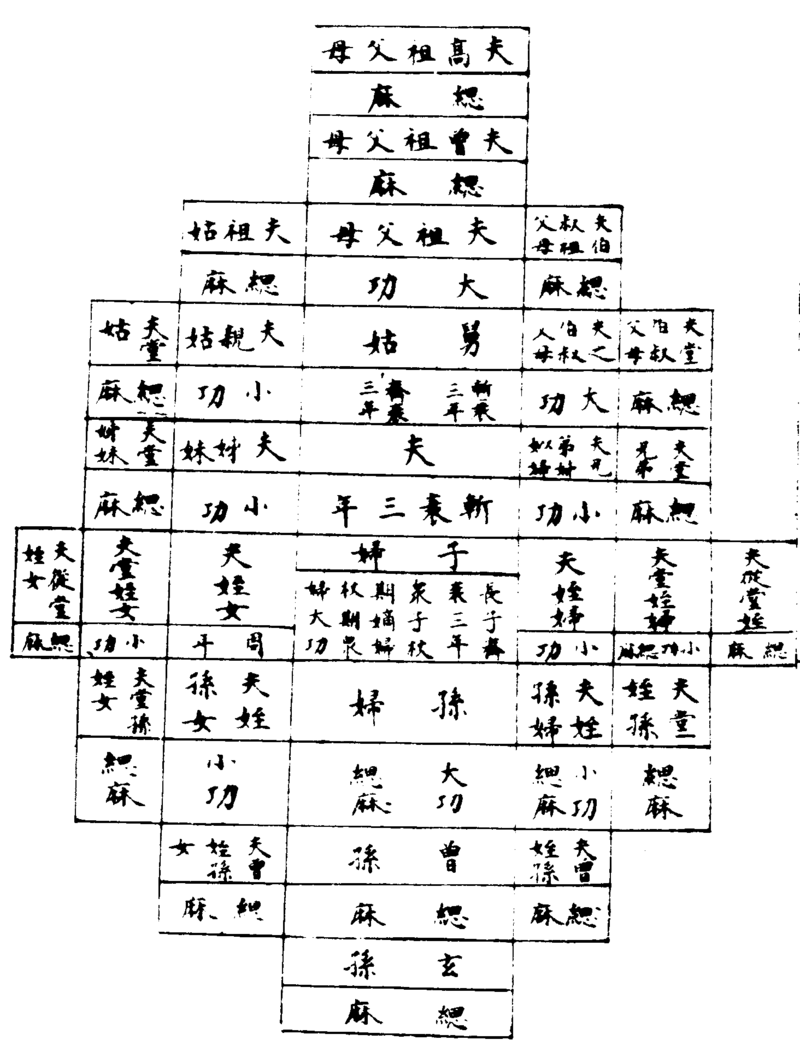 夫高祖父母
緦麻
夫曾祖父母
緦麻
夫叔父
伯祖母
夫祖父母
夫祖姑
緦麻
大功
緦麻
夫堂
伯叔
父母
夫之
伯叔
父母
舅姑
夫親姑
夫堂姑
緦麻
大功
斬衰三年
齊衰三年
小功
緦麻
夫堂
兄弟
夫兄
弟姊
姒婦
夫
夫姊妹
夫堂
姊妹
緦麻
小功
斬衰三年
小功
緦麻
夫從堂姪
夫堂姪婦
夫姪婦
子婦
長子齊
衰三年
衆子杖
期嫡婦
杖期衆
婦大功
夫姪女
夫堂姪女
夫從堂
姪女
緦麻
小功緦麻
小功
周年
小功
緦麻
夫堂
姪孫
夫姪
孫婦
孫婦
夫姪
孫女
夫堂孫
姪女
緦麻
小功
緦麻
大功
緦麻
小功
緦麻
夫曾
姪孫
曾孫
夫曾
姪孫
女
緦麻
緦麻
緦麻
玄孫
緦麻